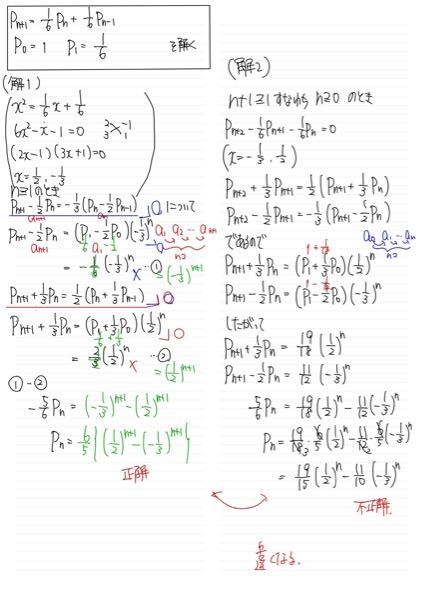 P_{n+1} = 1/6 P_n + 1/6 P_{n-1}
P_0 = 1  P_1 = 1/6  を解く
(解1)
x² = 1/6 x + 1/6
6x² - x - 1 = 0
(2x-1)(3x+1) = 0
x = 1/2, -1/3
n≧1のとき
P_{n+1} - 1/2 P_n = -1/3 (P_n - 1/2 P_{n-1})
について
P_{n+1} - 1/2 P_n = (P_1 - 1/2 P_0)(-1/3)^n
(-1/3)^n × …① = (-1/3)^{n+1}
P_{n+1} + 1/3 P_n = 1/2 (P_n + 1/3 P_{n-1})
P_{n+1} + 1/3 P_n = (P_1 + 1/3 P_0)(1/2)^n
(1/2)^n × …② = (1/2)^{n+1}
①-②
-5/6 P_n = (-1/3)^{n+1} - (1/2)^{n+1}
P_n = 6/5 { (1/2)^{n+1} - (-1/3)^{n+1} }
正解
(解2)
n+1≧1 すなわち n≧0 のとき
P_{n+2} - 1/6 P_{n+1} - 1/6 P_n = 0
(x = -1/3, 1/2)
P_{n+2} + 1/3 P_{n+1} = 1/2 (P_{n+1} + 1/3 P_n)
P_{n+2} - 1/2 P_{n+1} = -1/3 (P_{n+1} - 1/2 P_n)
であるので
P_{n+1} + 1/3 P_n = (P_1 + 1/3 P_0)(1/2)^n
P_{n+1} - 1/2 P_n = (P_1 - 1/2 P_0)(-1/3)^n
したがって
P_{n+1} + 1/3 P_n = 19/18 (1/2)^n
P_{n+1} - 1/2 P_n = 11/12 (-1/3)^n
5/6 P_n = 19/18 (1/2)^n - 11/12 (-1/3)^n
P_n = 19/18 · 6/5 (1/2)^n - 11/12 · 6/5 (-1/3)^n
= 19/15 (1/2)^n - 11/10 (-1/3)^n
不正解